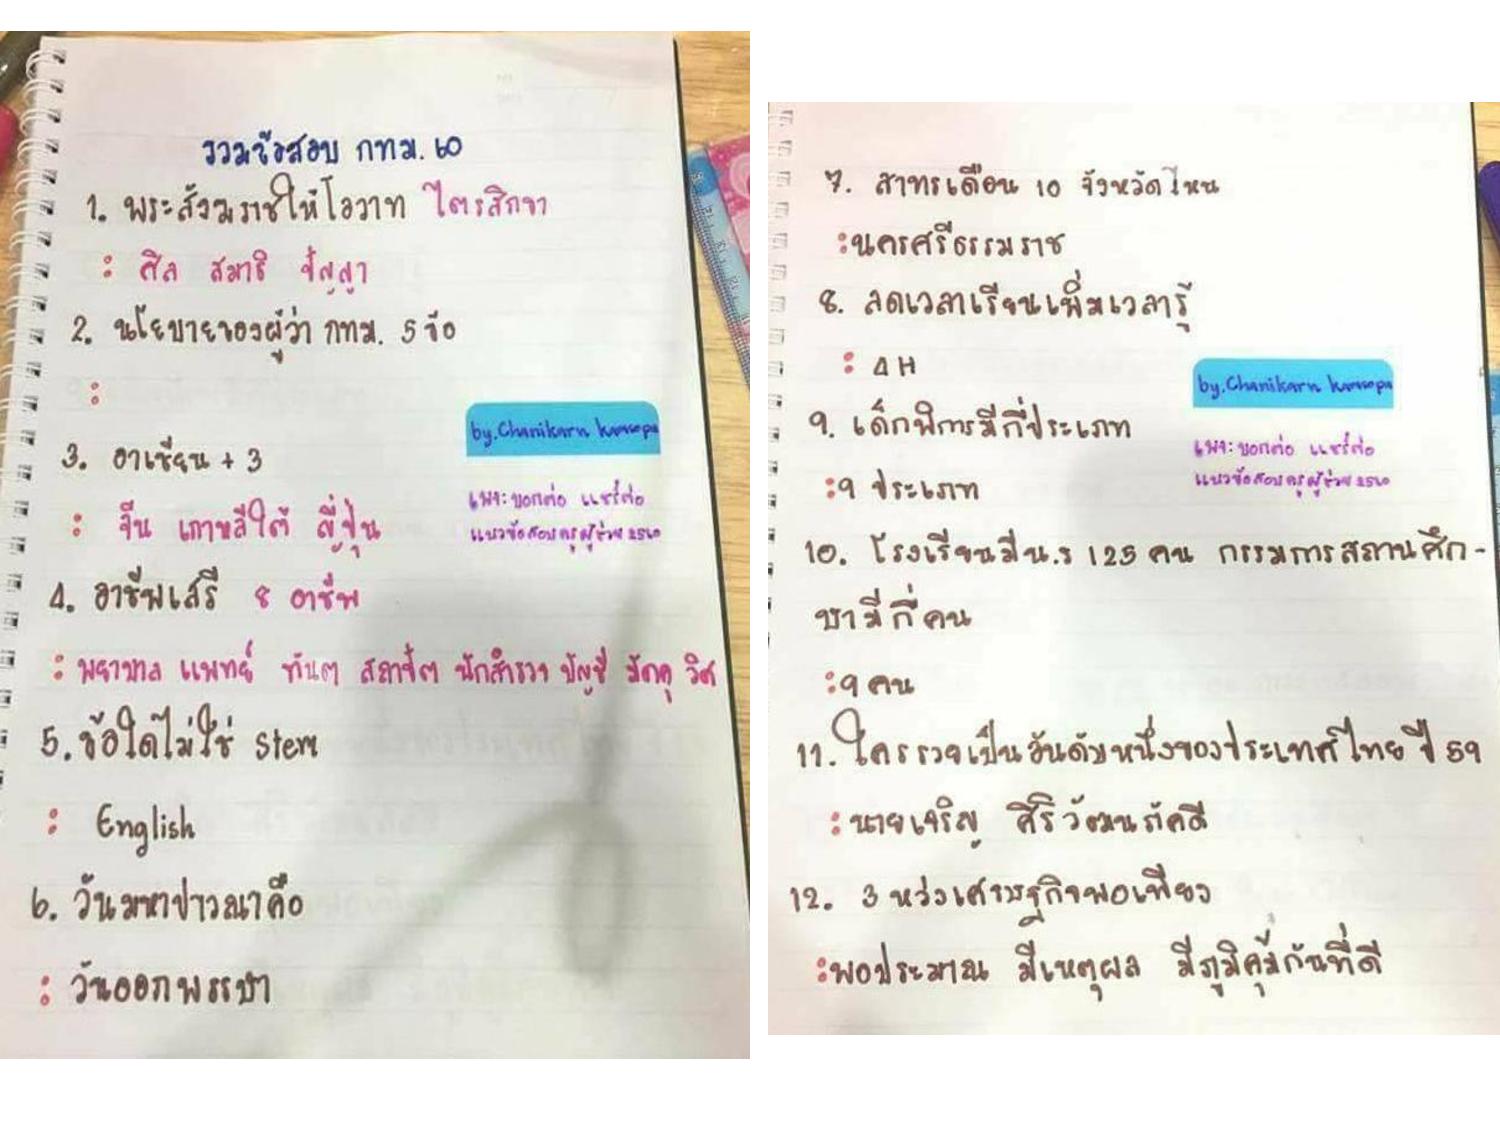 รวมข้อสอบ กทม. 60
1. พระสังฆราชให้โอวาท ไตรสิกขา
: ศิล สมาธิ ปัญญา
2. นโยบายของผู้ว่า กทม. 5 ข้อ
:
3. อาเซียน + 3
: จีน เกาหลีใต้ ญี่ปุ่น
4. อาชีพเสรี 8 อาชีพ
: พยาบาล แพทย์ ทันต สถาปัต นักสำรวจ บัญชี มัคคุ วิศ
5. ข้อใดไม่ใช่ Stem
: English
6. วันมหาปาวณาคือ
: วันออกพรรษา
by.Chanikarn
เพจ: บอกต่อ แชร์ต่อ
แนวข้อสอบครูผู้ช่วย 2560
7. สาทรเดือน 10 จังหวัดไหน
: นครศรีธรรมราช
8. ลดเวลาเรียนเพิ่มเวลารู้
: 4H
9. เด็กพิการมีกี่ประเภท
: 9 ประเภท
10. โรงเรียนมีน.ร 125 คน กรรมการสถานศึก-
ษามีกี่คน
: 9 คน
11. ใครรวยเป็นอันดับหนึ่งของประเทศไทย ปี 59
: นายเจริญ ศิริวัฒนภักดี
12. 3 ห่วงเศรษฐกิจพอเพียง
: พอประมาณ มีเหตุผล มีภูมิคุ้มกันที่ดี
by.Chanikarn
เพจ: บอกต่อ แชร์ต่อ
แนวข้อสอบครูผู้ช่วย 2560